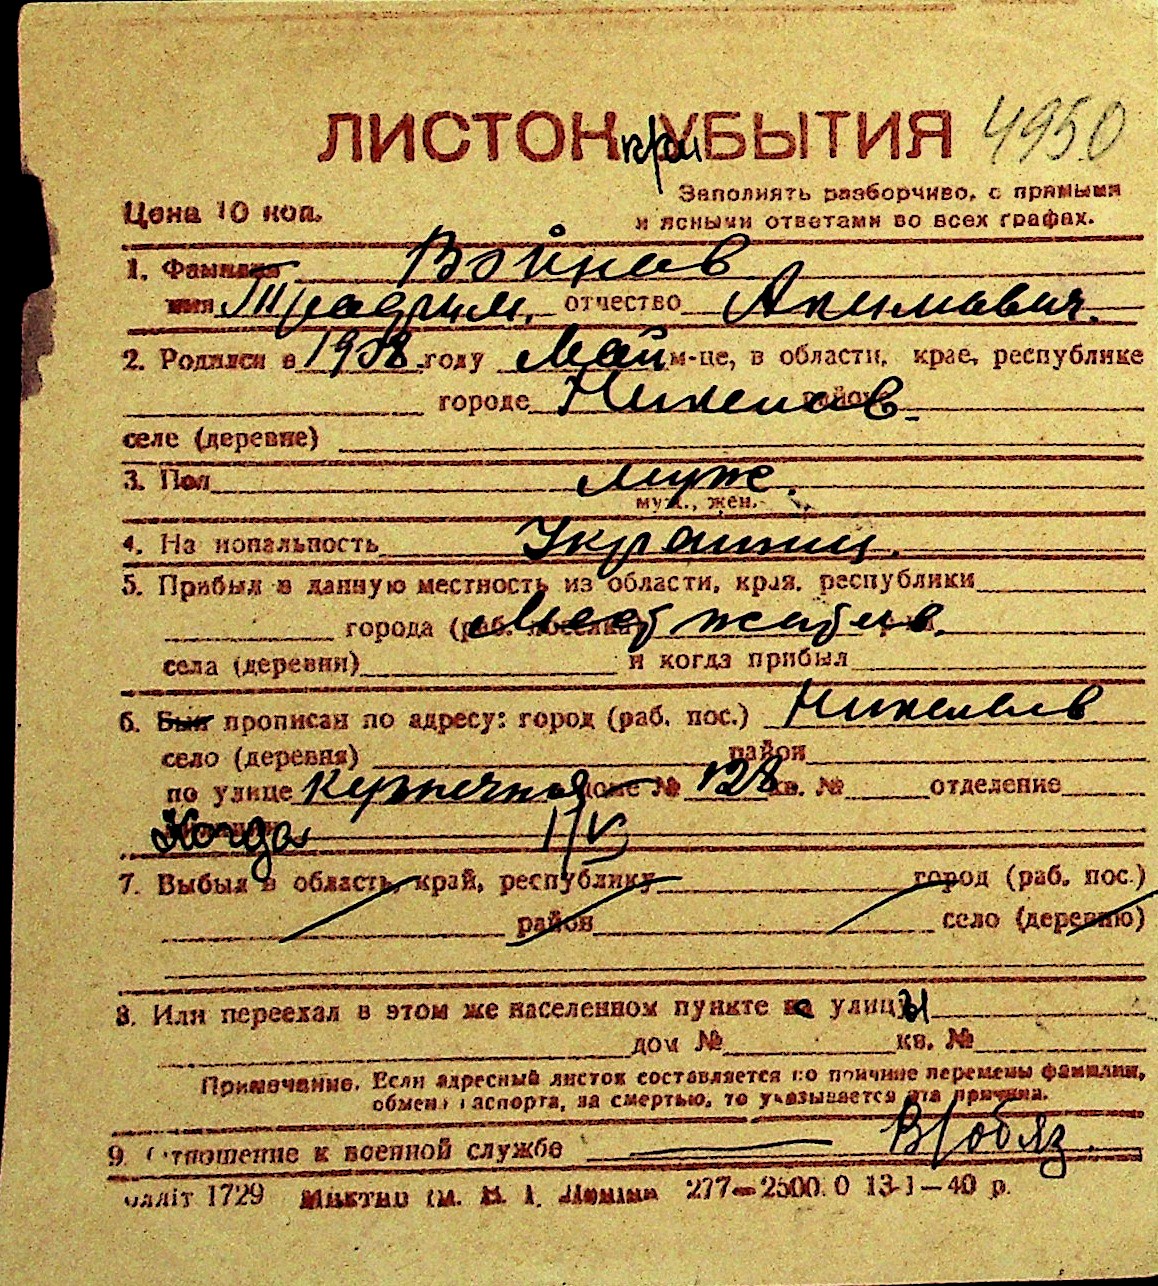 ЛИСТОК при УБЫТИЯ 4950
Цена 10 коп.
Заполнять разборчиво, с прямыми
и ясными ответами во всех графах.
1. Фамилия Войнов
имя Традрим. отчество Акимович.
2. Родился в 1908 году Май м-це, в области, крае, республике
городе Николаев район
селе (деревне)
3. Пол муж.
муж., жен.
4. На иональность Украинец.
5. Прибыл в данную местность из области, края, республики
города (раб. поселка) Мест жабыв.
села (деревни) и когда прибыл
6. Был прописан по адресу: город (раб. пос.) Николаев
село (деревня) район
по улице Кузнечная доме № 128 кв. № отделение
Когда 1/VI
7. Выбыл в область, край, республику город (раб. пос.)
район село (деревню)
8. Или переехал в этом же населенном пункте на улицы
дом № кв. №
Примечание. Если адресный листок составляется по причине перемены фамилии,
обмена паспорта, за смертью, то указывается эта причина.
9. Отношение к военной службе — В/обяз.
1729 277—2500.0 13-I—40 р.